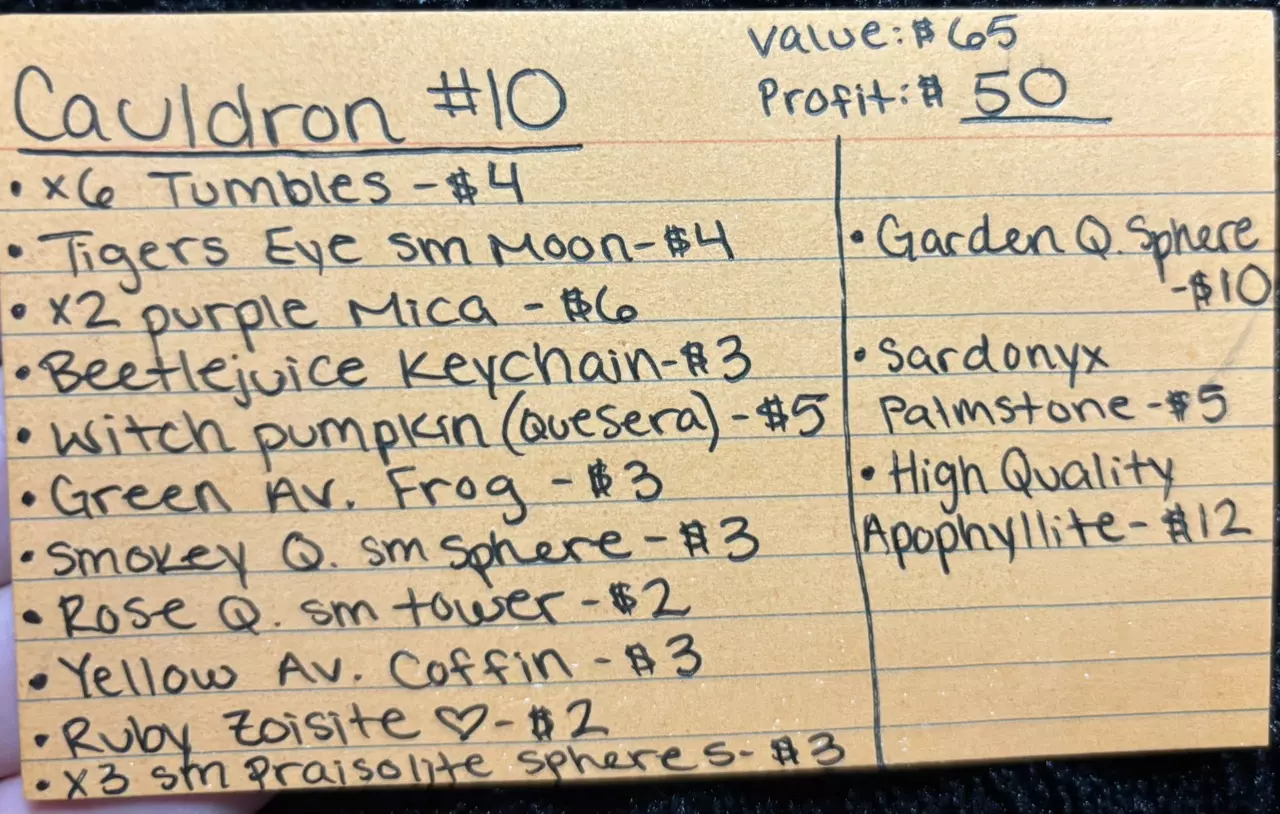 Value: $65
Profit: $ 50
Cauldron #10
• x6 Tumbles - $4
• Tigers Eye sm Moon - $4
• x2 purple Mica - $6
• Beetlejuice Keychain - $3
• Witch pumpkin (Quesera) - $5
• Green Av. Frog - $3
• Smokey Q. sm Sphere - $3
• Rose Q. sm tower - $2
• Yellow Av. Coffin - $3
• Ruby Zoisite ♡ - $2
• x3 sm Praisolite spheres - $3
• Garden Q. Sphere
- $10
• Sardonyx
Palmstone - $5
• High Quality
Apophyllite - $12